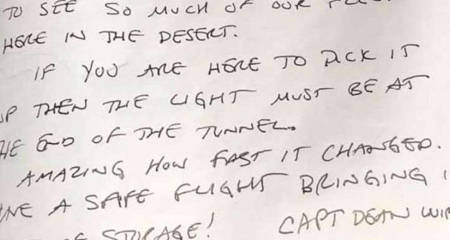 TO SEE SO MUCH OF OUR
HERE IN THE DESERT.
IF YOU ARE HERE TO PICK IT
UP THEN THE LIGHT MUST BE AT
THE END OF THE TUNNEL.
AMAZING HOW FAST IT CHANGED.
A SAFE FLIGHT BRINGING
STORAGE! CAPT DEAN